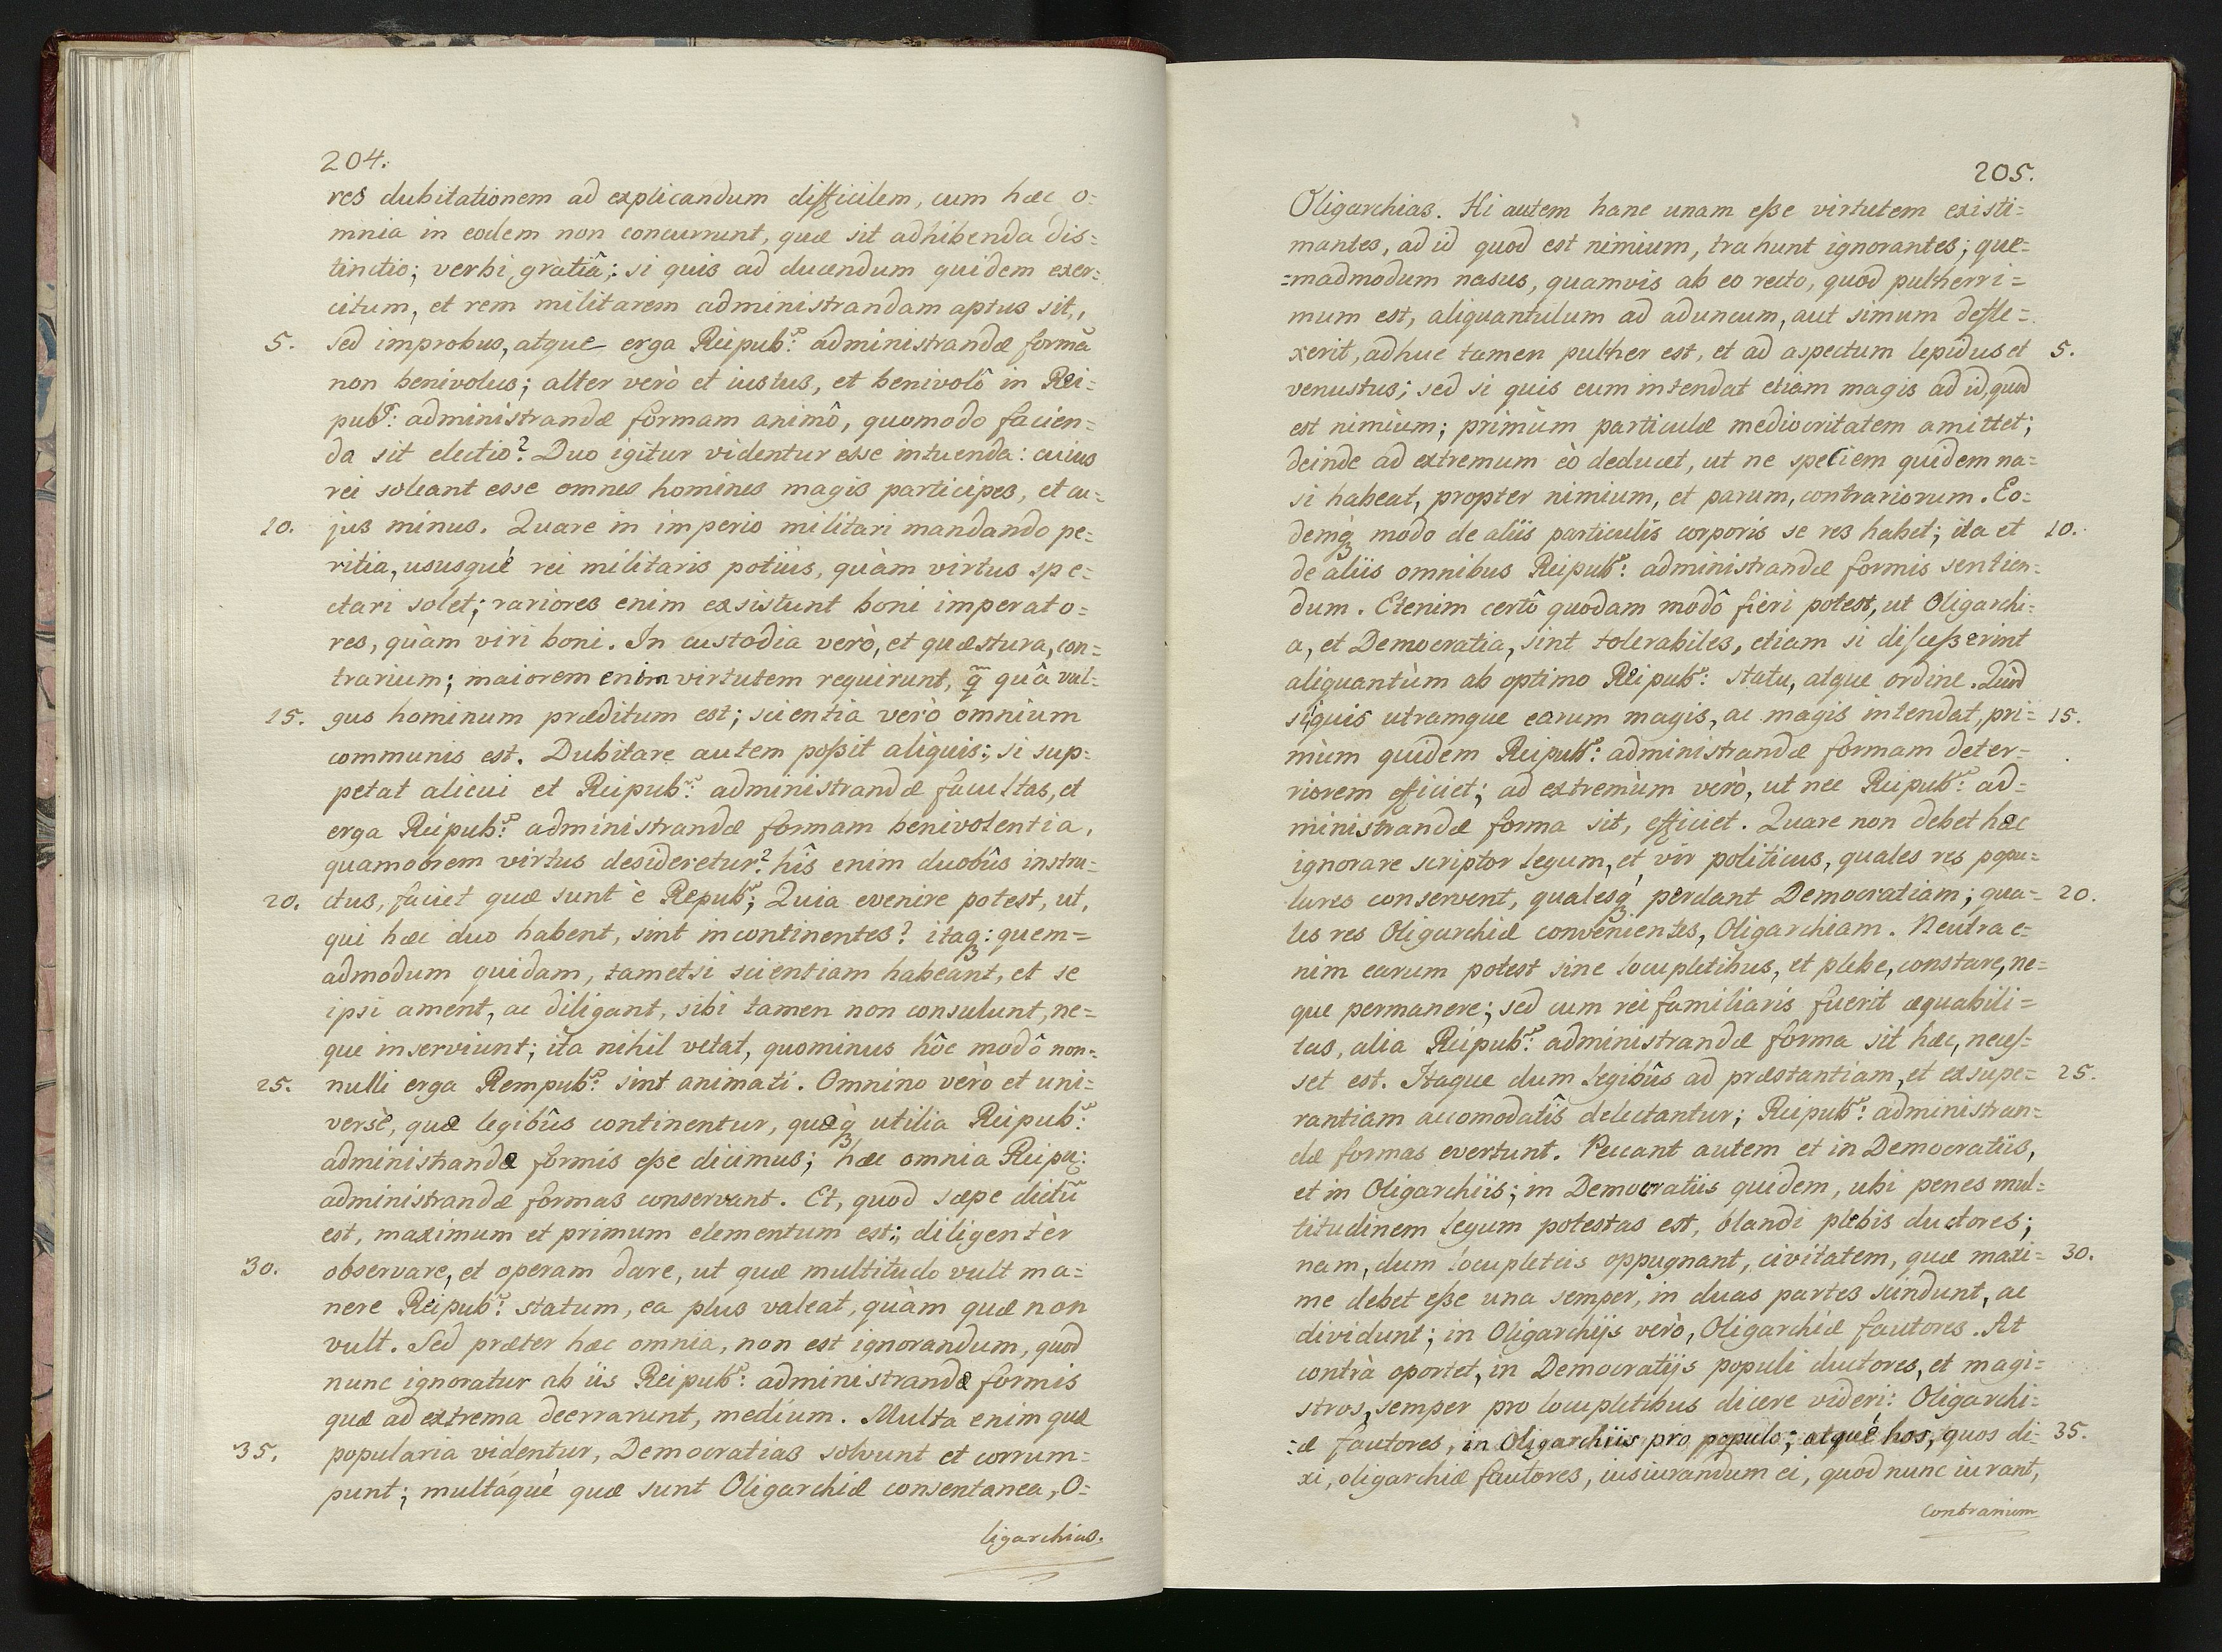 204.
res dubitationem ad explicandum difficilem, cum hæc o=
mnia in eodem non concurrunt, quæ sit adhibenda dis=
tinctio; verbi gratiâ; si quis ad ducendum quidem exer=
citum, et rem militarem administrandam aptus sit,
5. sed improbus, atque erga Reipub:ᶜᵉ administrandæ formã
non benivolus; alter verò et iustus, et benivolô in Rei=
pub:ᶜᵉ administrandæ formam animô, quomodo facien=
da sit electio? Duo igitur videntur esse intuenda: cuius
rei soleant esse omnes homines magis participes, et cu=
10. jus minus. Quare in imperio militari mandando pe=
ritia, ususquè rei militaris potiùs, quàm virtus spe=
ctari solet; rariores enim exsistunt boni imperato=
res, quàm viri boni. In custodia verò, et quæstura, con=
trarium; maiorem enim virtutem requirunt, q̃ quâ vul=
15. gus hominum præditum est; scientia verò omnium
communis est. Dubitare autem poßit aliquis; si sup=
petat alicui et Reipub:ᶜᵉ administrandæ facultas, et
erga Reipub:ᶜᵉ administrandæ formam benivolentia,
quamobrem virtus desideretur? hîs enim duobûs instru=
20. ctus, faciet quæ sunt è Repub:ᶜᵉ; Quia evenire potest, ut,
qui hæc duo habent, sint incontinentes? itaqꝫ: quem=
admodum quidam, tametsi scientiam habeant, et se
ipsi ament, ac diligant, sibi tamen non consulunt, ne=
que inserviunt; ita nihil vetat, quominus hôc modô non=
25. nulli erga Rempub:ᶜᵉ sint animati. Omnino verò et uni=
versè, quæ legibûs continentur, quæqꝫ̀ utilia Reipub:ᶜᵉ
administrandæ formis eße dicimus; hæc omnia Reipu:
administrandæ formas conservant. Et, quod sæpe dictũ
est, maximum et primum elementum est; diligentèr
30. observare, et operam dare, ut quæ multitudo vult ma=
nere Reipub:ᶜᵉ statum, ea plus valeat, quàm quæ non
vult. Sed præter hæc omnia, non est ignorandum, quod
nunc ignoratur ab iis Reipub:ᶜᵉ administrandæ formis
quæ ad extrema deerrarunt, medium. Multa enim quæ
35. popularia videntur, Democratias solvunt et corrum=
punt; multáquè quæ sunt Oligarchiæ consentanea, O=
ligarchias.
205.
Oligarchias. Hi autem hanc unam eße virtutem existi=
mantes, ad id quod est nimium, trahunt ignorantes; que=
=madmodum nasus, quamvis ab eo recto, quod pulcherri=
mum est, aliquantulum ad aduncum, aut simum defle=
xerit, adhuc tamen pulcher est, et ad aspectum lepidus et 5.
venustus; sed si quis eum intendat etiam magis ad id, quod
est nimium; primùm particulæ mediocritatem amittet;
deinde ad extremum eò deducet, ut ne speciem quidem na=
si habeat, propter nimium, et parum, contrariorum. Eo=
demqꝫ̀ modo de aliis particulis corporis se res habet; ita et 10.
de aliis omnibus Reipub:ᶜᵉ administrandæ formis sentien=
dum. Etenim certô quodam modô fieri potest, ut Oligarchi=
a, et Democratia, sint tolerabiles, etiam si disceßerint
aliquantùm ab optimo Reipub:ᶜᵉ statu, atque ordine. Quòd
siquis utramque earum magis, ac magis intendat, pri= 15.
mùm quidem Reipub:ᶜᵉ administrandæ formam deter=
riorem efficiet; ad extremùm verò, ut nec Reipub:ᶜᵉ ad=
ministrandæ forma sit, efficiet. Quare non debet hæc
ignorare scriptor legum, et vir politicus, quales res popu=
lares conservent, qualesqꝫ̀ perdant Democratiam; qua= 20.
les res Oligarchiæ convenientes, Oligarchiam. Neutra e=
nim earum potest sine locupletibus, et plebe, constare, ne=
que permanere; sed cum rei familiaris fuerit æquabili=
tas, alia Reipub:ᶜᵉ administrandæ forma sit hæc, neces=
set est. Itaque dum legibûs ad præstantiam, et exsupe= 25.
rantiam accomodatîs delectantur; Reipub:ᶜᵉ administran=
dæ formas evertunt. Peccant autem et in Democratiis,
et in Oligarchiis; in Democratiis quidem, ubi penes mul=
titudinem legum potestas est, blandi plebis ductores;
nam, dum locupleteis oppugnant, civitatem, quæ maxi= 30.
me debet eße una semper, in duas partes scindunt, ac
dividunt; in Oligarchijs verò, Oligarchiæ fautores. At
contrà oportet, in Democratijs populi ductores, et magi=
stros, semper pro locupletibus dicere videri: Oligarchi=
=æ fautores, in Oligarchiis pro populo; atquè hos, quos di= 35.
xi, oligarchiæ fautores, iusiurandum ei, quod nunc iurant,
contrarium